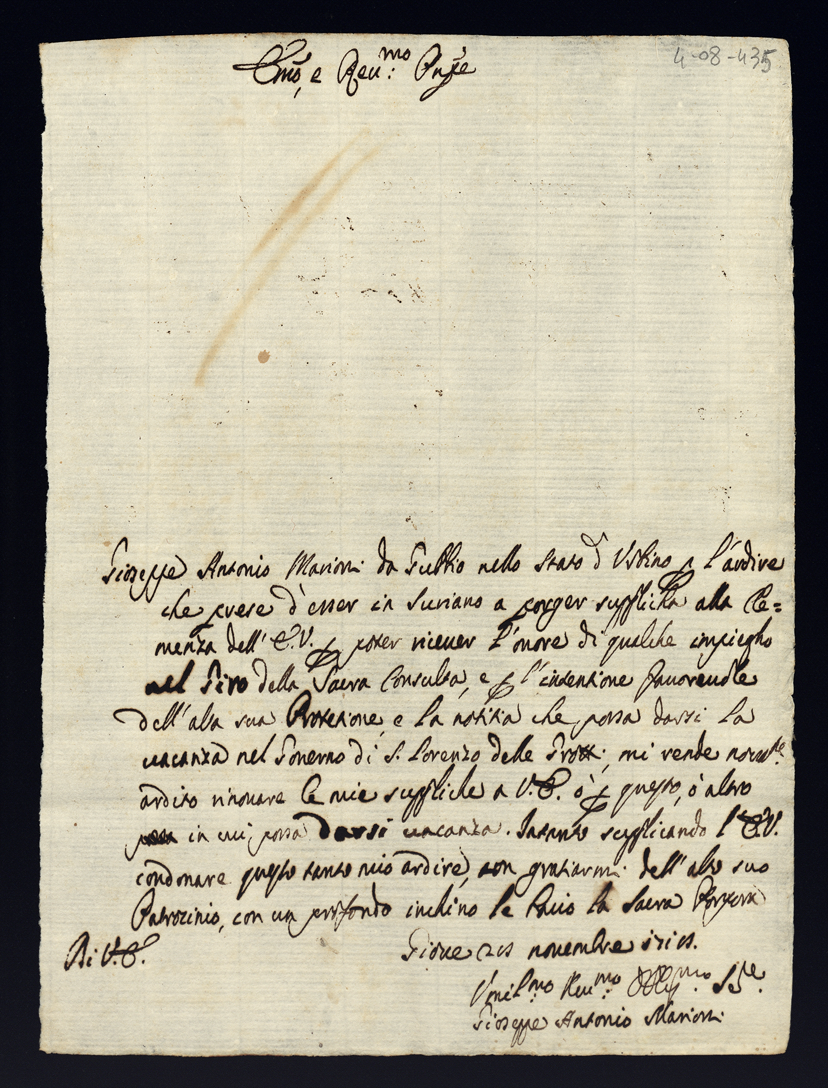 4-08-435
Em̃o, e Reu:mo Pñpe
Gioseppe Antonio Marioni da Gubbio nello stato d' Vrbino p l'ardire
che prese d'esser in Suriano a porger supplicha alla Cle=
menza dell' E.V. p poter riceuer l'onore di qualche impiegho
nel Giro della Sacra Consulta, e p l'intentione fauoreuole
dell' alta sua Protetione, e la notitia che possa darsi la
uacanza nel Gouerno di S. Lorenzo delle Grotte, mi rende
ardito rinouare le mie suppliche a V.E. ò p questo, ò altro
in cui possa darsi uacanza. Intanto supplicando l'E.V.
condonare questo tanto mio ardire, con gratiarmi dell' alto suo
Patrocinio, con un profondo inchino le bacio la Sacra Porpora
Di V.E.
Gioue novembre
Vmil:mo Reu:mo Oblig:mo Sre.
Gioseppe Antonio Marioni